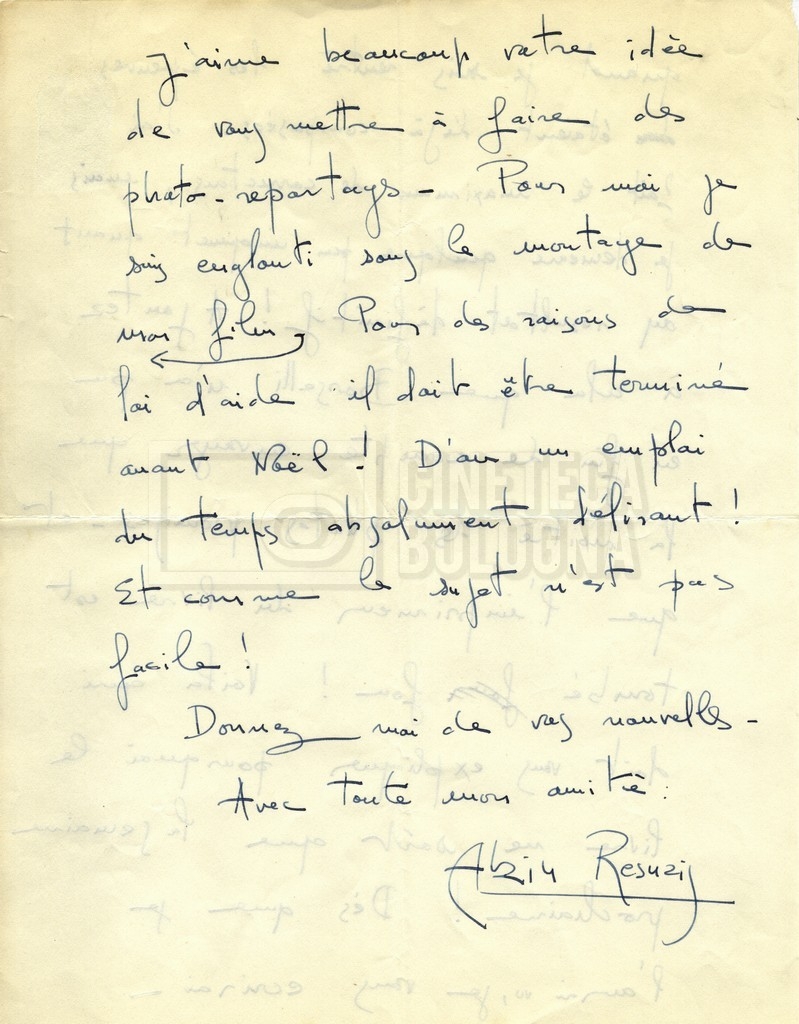 J'aime beaucoup votre idée
de vous mettre à faire des
photo-reportages - Pour moi je
suis englouti sous le montage de
mon film. Pour des raisons de
loi d'aide il doit être terminé
avant Noël! D'où un emploi
du temps absolument délirant!
Et comme le sujet n'est pas
facile!
Donnez moi de vos nouvelles -
Avec toute mon amitié.
CINETECA
BOLOGNA